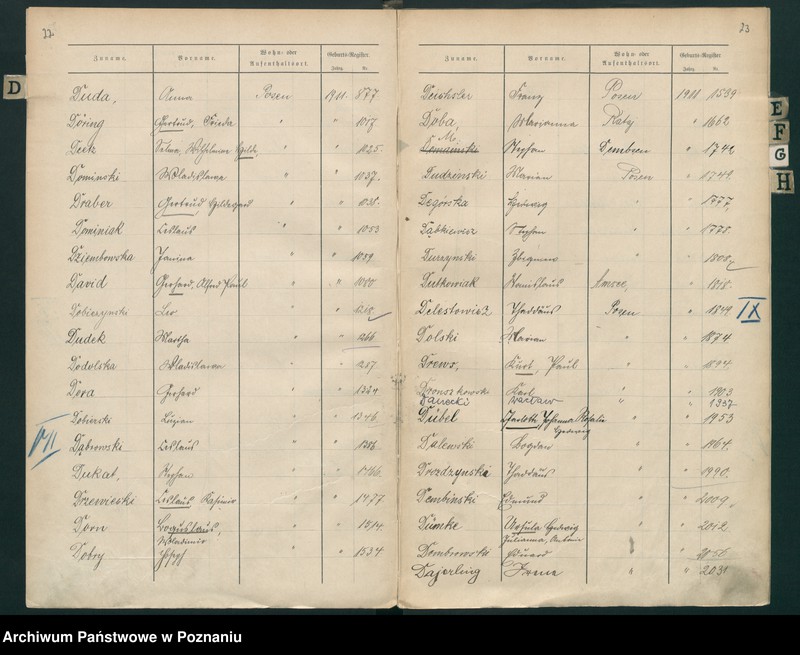 22.
Zuname. Vorname. Wohn- oder Aufenthaltsort. Geburts-Register. Jahrg. Nr.
D
Duda, Anna Posen 1911 877
Döring Gertrud, Frieda " " 1017
Deck Selma, Wilhelmine " " 1025.
Dominski Wladislawa " " 1037.
Draber Gertrud Hildegard " " 1038.
Dominiak Ceslaus " 1053
Dziembowska Janina " " 1059.
David Gerhard, Alfred Paul " "
Dobierzynski Leo " "
Dudek Martha " " 1266.
Dodolska Wladislawa " "
Dera Gerhard " " 1334
Lucjan " " 1346.
VIII
Dąbrowski Ceslaus " "
Dukat, Stephan " " 1466.
Drzewieski Ceslaus Kasimir " " 1477
Dorn Boguslaus, Wladimir " " 1514
Dobry Joseph " " 1534
23
Zuname. Vorname. Wohn- oder Aufenthaltsort. Geburts-Register. Jahrg. Nr.
E
F
G
H
Deichsler Franz Posen 1911 1539
Doba, Marianna Raty " 1662
M. Stephan Dembsen " 1742
Dudzinski Marian Posen " 1749.
Degórska Hedwig " " 1777,
Dąbkiewicz Stephan " " 1778.
Durzynski Zbigniew " " 1808.
Dutkowiak Stanislaus Amsee, "
Delestowicz Thaddäus Posen " 1849
IX
Dolski Marian " " 1874
Drews, Kurt, Paul " " 1894.
Karl " " 1903
Danecki Wacław " " 1337
Dübel Charlotte Johanna Rosalie Hedwig " " 1953
Dalewski Bogdan " " 1964.
Drozdzynski Thaddäus " " 1990.
Dembinski Edmund " " 2009,
Dümke Ursula Hedwig Julianna, Antonie " " 2012
Dombrowski Eduard " "
Dajerling Irene " " 2031
Archiwum Państwowe w Poznaniu